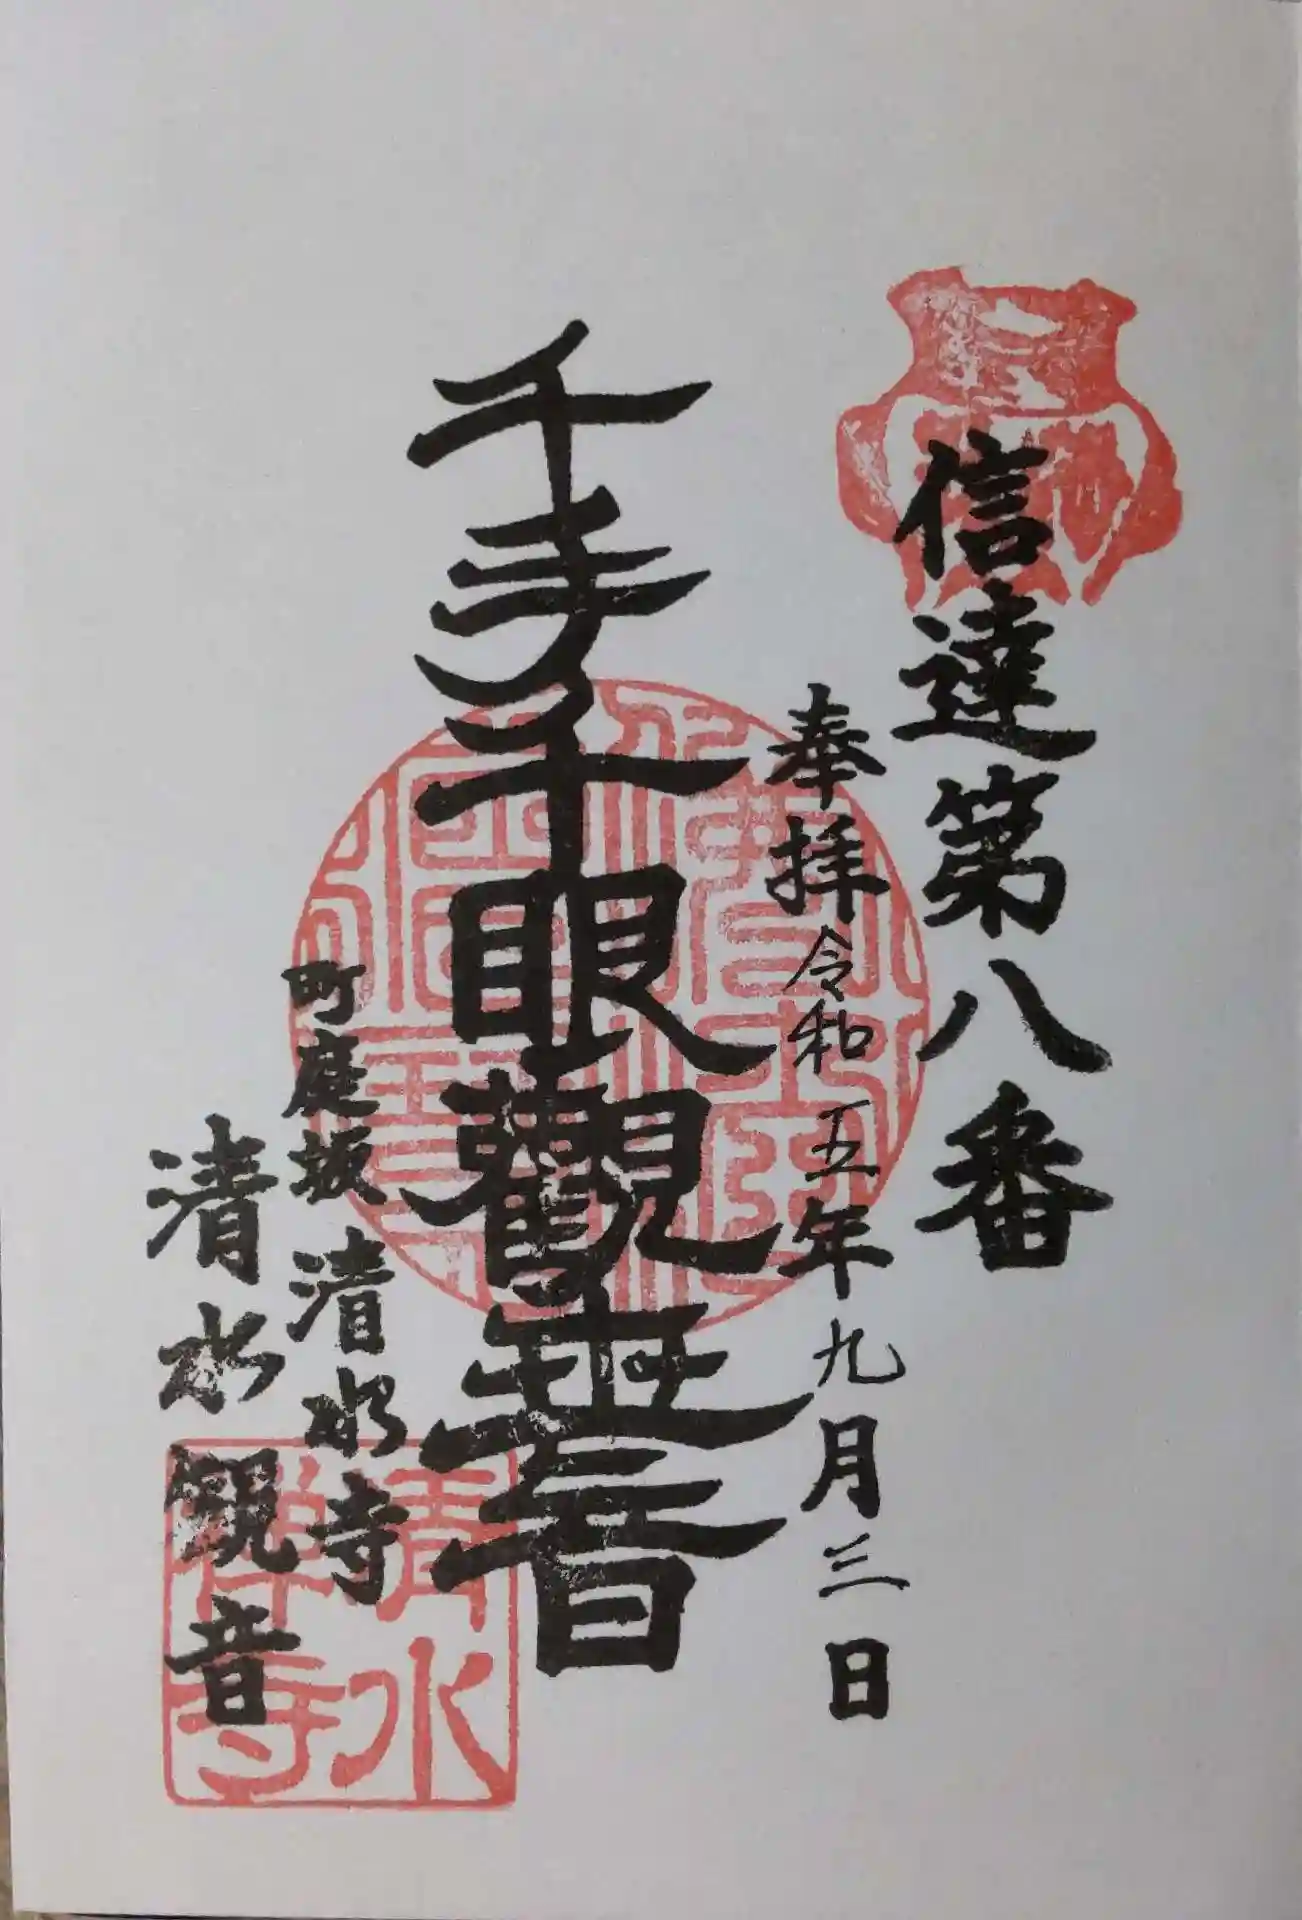 信達第八番
奉拝令和五年九月三日
千手千眼觀世音
町庭坂 清水寺
清水観音